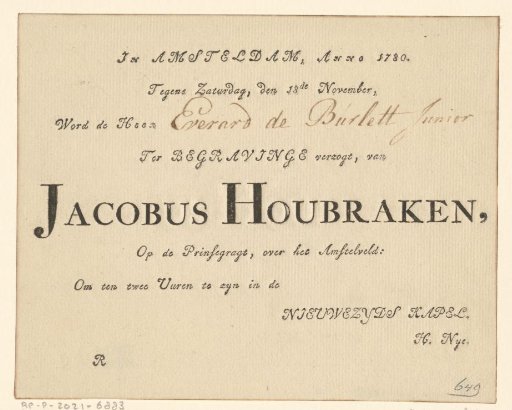 In AMSTELDAM, Anno 1780.
Tegens Zaturdag, den 18de November,
Word de Heer Everard de Burlett Junior
Ter BEGRAVINGE verzogt, van
JACOBUS HOUBRAKEN,
Op de Prinsegragt, over het Amstelveld:
Om ten twee Uuren te zyn in de
NIEUWEZYDS KAPEL.
H. Nye.
R
649
RP-P-2021-6333